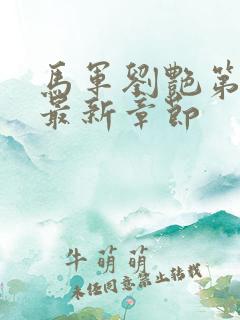 馬軍劉艷第
最新章節
牛萌萌
未经同意禁止转载